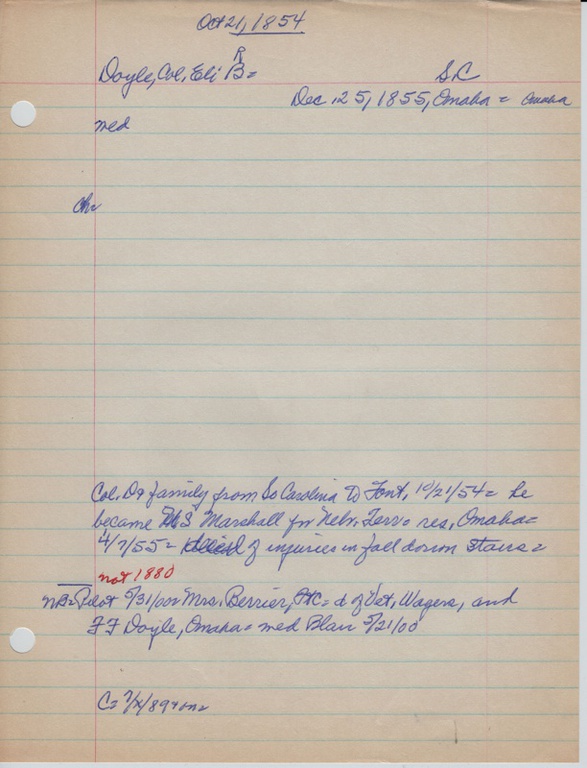 Oct 21, 1854
R
Doyle, Col. Eli B= S.C
Dec 25, 1855, Omaha = Omaha
med
ch=
Col. D & family from So Carolina to Font, 10/21/54 = he
became U S Marshall for Nebr. Terr = res, Omaha =
4/7/55 = died of injuries in fall down stairs =
not 1880
NB= Pilot 5/31/00= Mrs. Berrier, = d of Vet, Wagers, and
F F Doyle, Omaha = med Blair 5/21/00